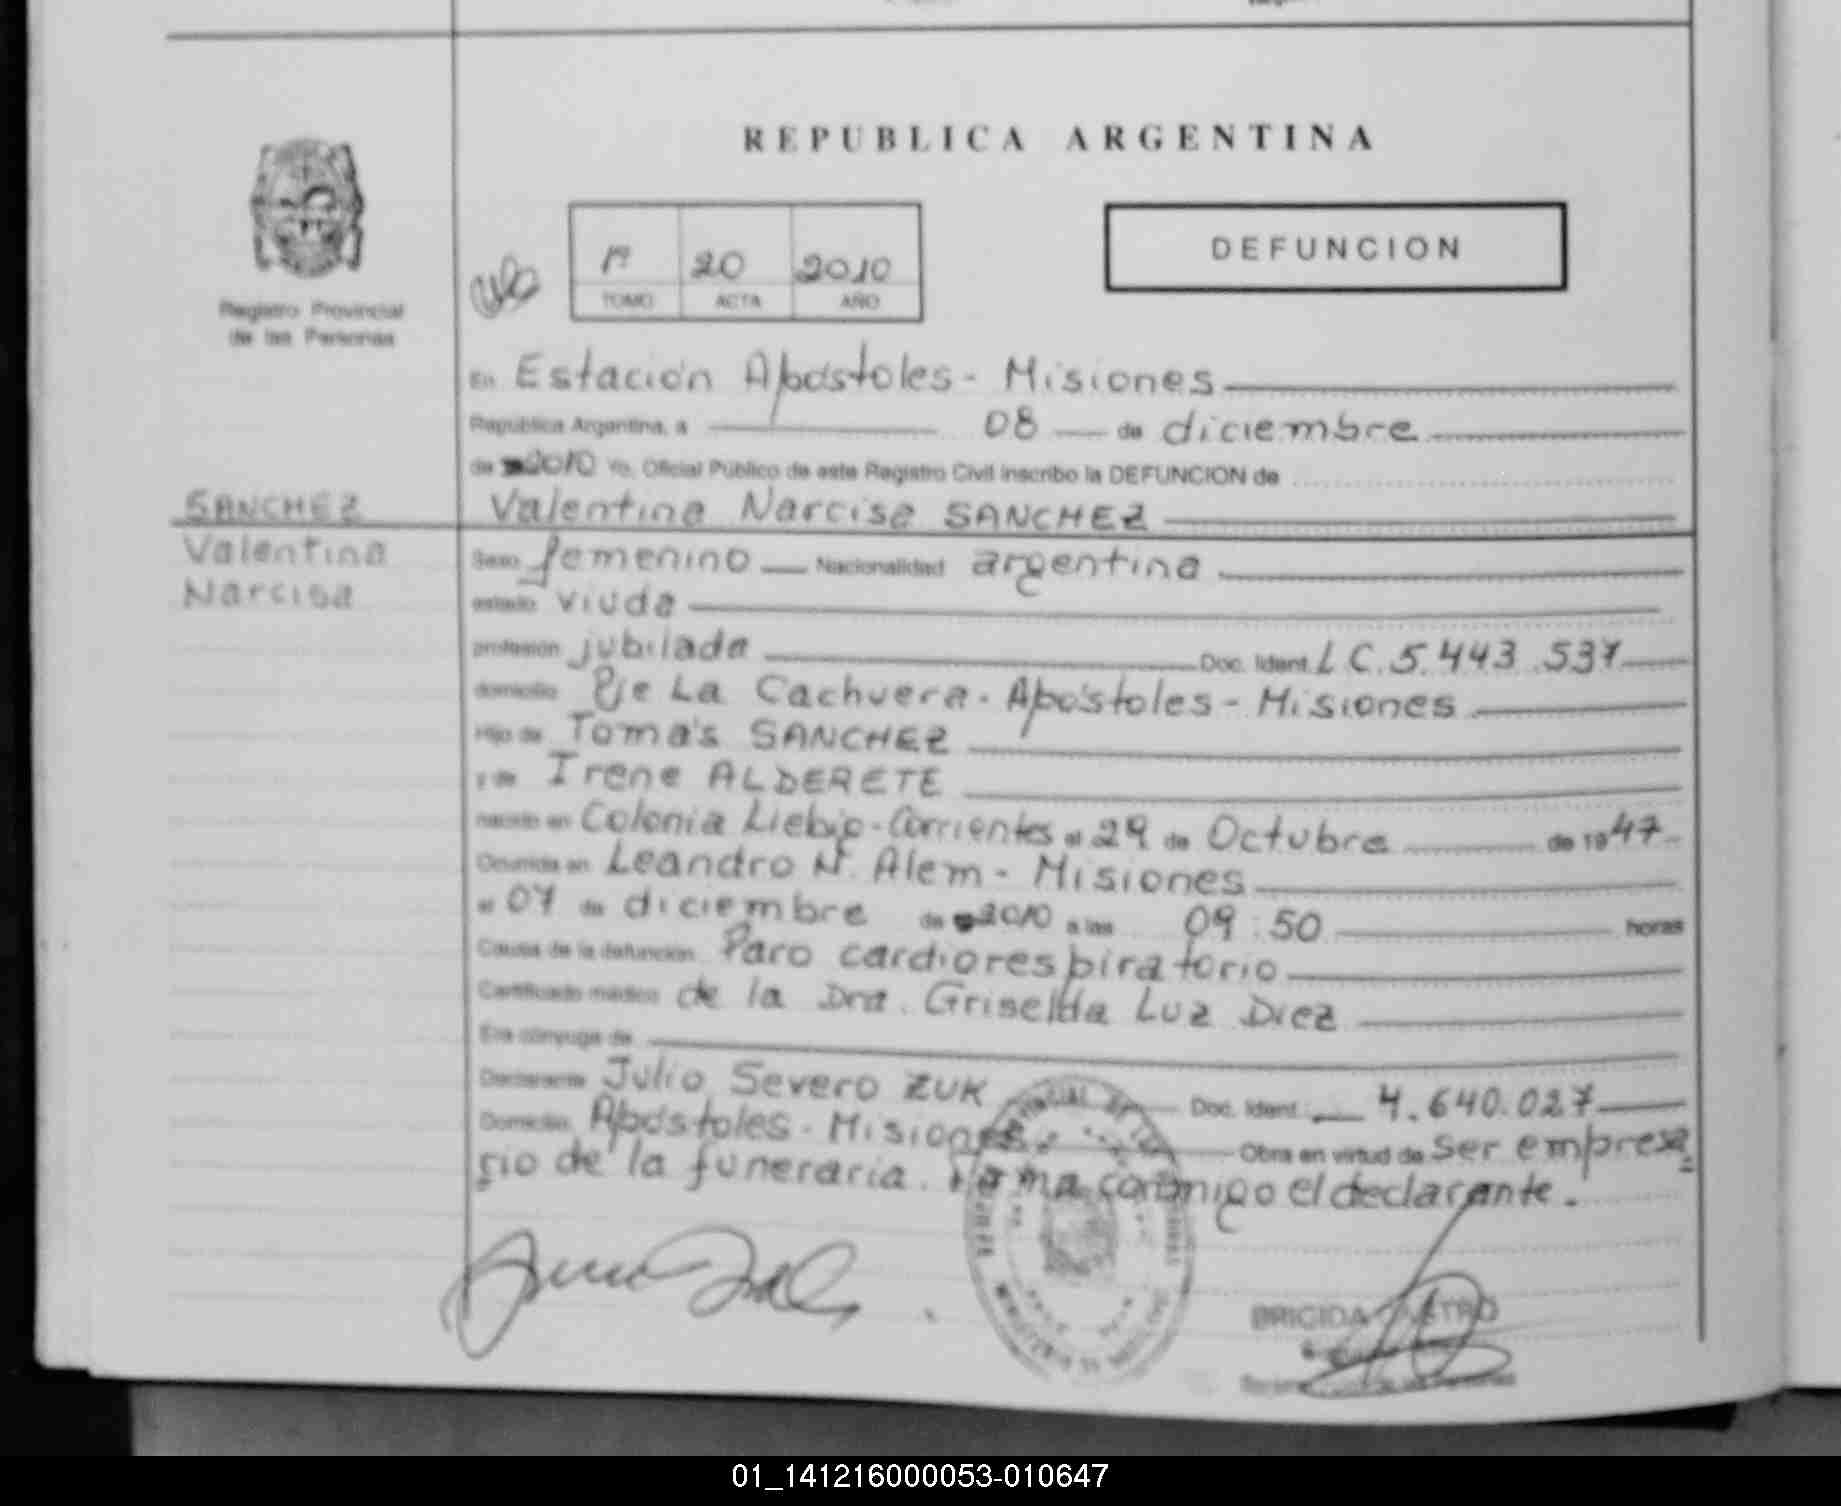 REPUBLICA ARGENTINA
DEFUNCION
1º 20 2010
TOMO ACTA AÑO
Registro Provincial
de las Personas
En Estación Apóstoles - Misiones
República Argentina, a 08 de diciembre
de 2010 Yo, Oficial Público de este Registro Civil inscribo la DEFUNCION de
SANCHEZ
Valentina
Narcisa
Valentina Narcisa SANCHEZ
Sexo femenino Nacionalidad argentina
estado viuda
profesión jubilada Doc. Ident. L.C. 5.443.537
domicilio Pje La Cachuera - Apóstoles - Misiones
Hijo de Tomás SANCHEZ
y de Irene ALDERETE
nacido en Colonia Liebig - Corrientes el 29 de Octubre de 1947
Ocurrida en Leandro N. Alem - Misiones
el 07 de diciembre de 2010 a las 09:50 horas
Causa de la defunción Paro cardiorespiratorio
Certificado médico de la Dra. Griselda Luz Diez
Era cónyuge de
Declarante Julio Severo ZUK Doc. Ident. 4.640.027
Domicilio Apóstoles - Misiones. Obra en virtud de ser empresa
rio de la funeraria. Firma conmigo el declarante.
BRIGIDA
01_141216000053-010647